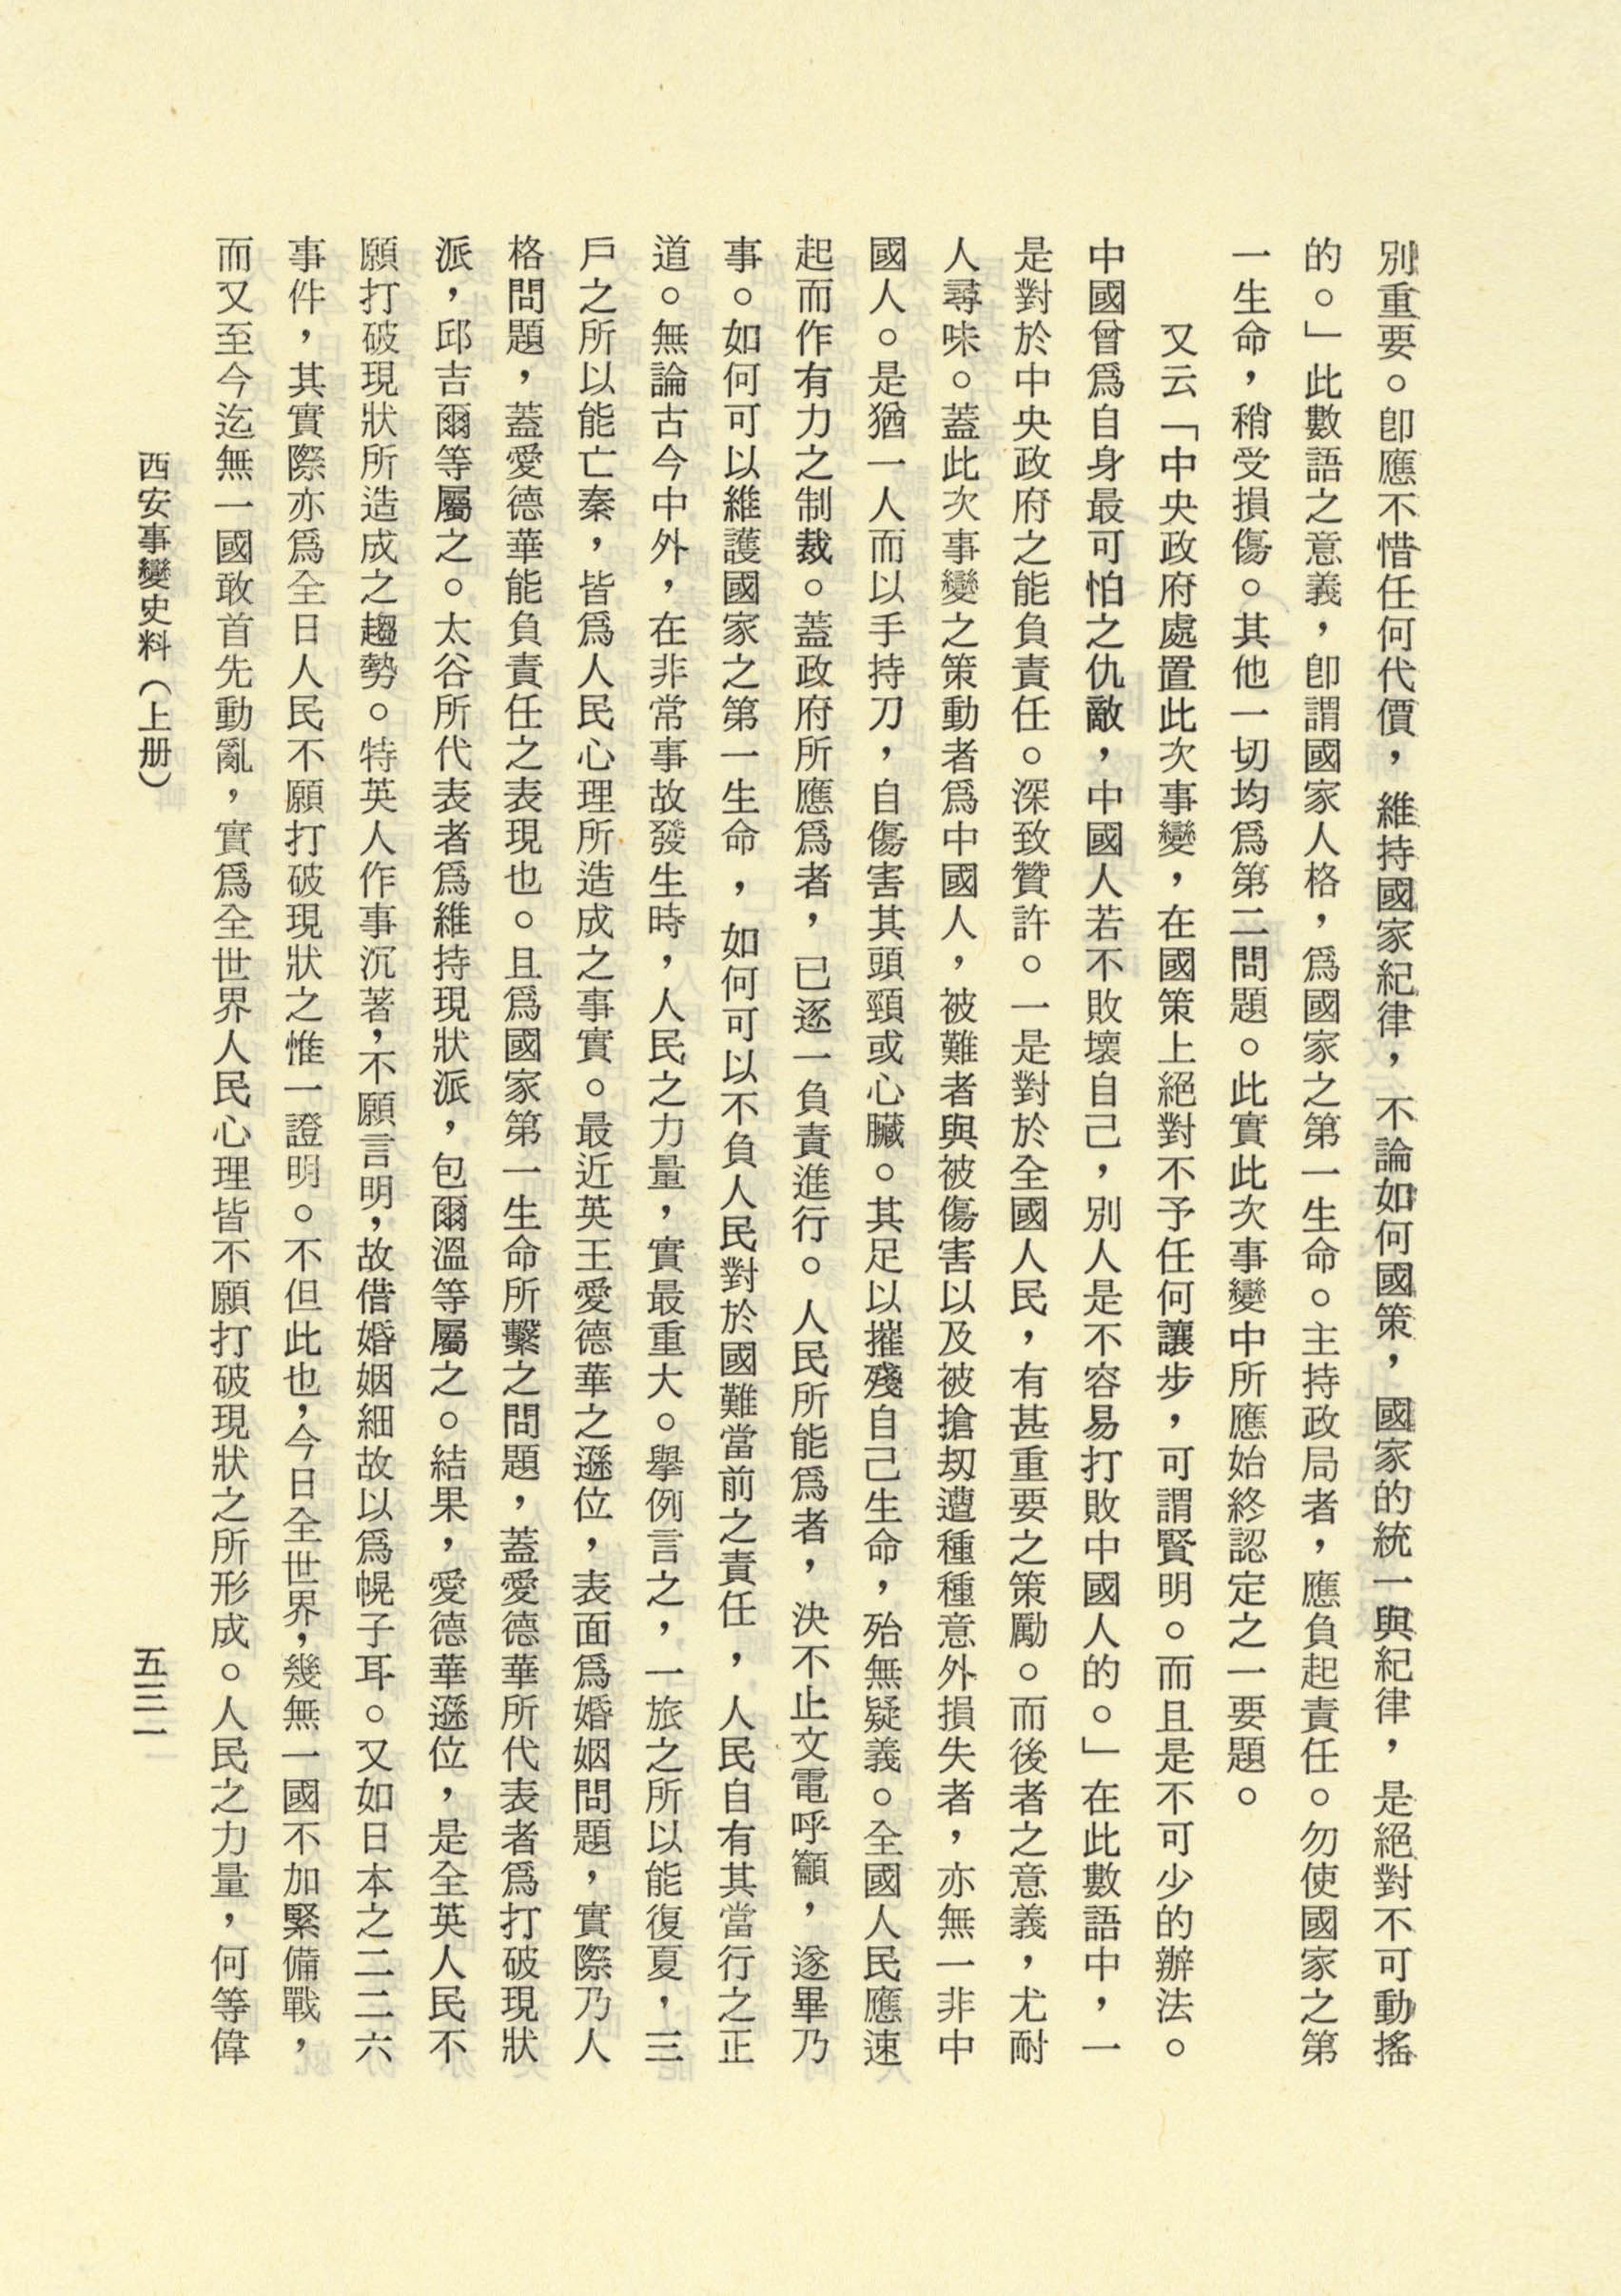 別重要。卽應不惜任何代價，維持國家紀律，不論如何國策，國家的統一與紀律，是絕對不可動搖
的。」此數語之意義，卽謂國家人格，爲國家之第一生命。主持政局者，應負起責任。勿使國家之第
一生命，稍受損傷。其他一切均爲第二問題。此實此次事變中所應始終認定之一要題。
又云「中央政府處置此次事變，在國策上絕對不予任何讓步，可謂賢明。而且是不可少的辦法。
中國曾爲自身最可怕之仇敵，中國人若不敗壞自己，別人是不容易打敗中國人的。」在此數語中，一
是對於中央政府之能負責任。深致贊許。一是對於全國人民，有甚重要之策勵。而後者之意義，尤耐
人尋味。蓋此次事變之策動者爲中國人，被難者與被傷害以及被搶刼遭種種意外損失者，亦無一非中
國人。是猶一人而以手持刀，自傷害其頭頸或心臟。其足以摧殘自己生命，殆無疑義。全國人民應速
起而作有力之制裁。蓋政府所應爲者，已逐一負責進行。人民所能爲者，決不止文電呼籲，遂畢乃
事。如何可以維護國家之第一生命，如何可以不負人民對於國難當前之責任，人民自有其當行之正
道。無論古今中外，在非常事故發生時，人民之力量，實最重大。舉例言之，一旅之所以能復夏，三
戶之所以能亡秦，皆爲人民心理所造成之事實。最近英王愛德華之遜位，表面爲婚姻問題，實際乃人
格問題，蓋愛德華能負責任之表現也。且爲國家第一生命所繫之問題，蓋愛德華所代表者爲打破現狀
派，邱吉爾等屬之。太谷所代表者爲維持現狀派，包爾溫等屬之。結果，愛德華遜位，是全英人民不
願打破現狀所造成之趨勢。特英人作事沉著，不願言明，故借婚姻細故以爲幌子耳。又如日本之二二六
事件，其實際亦爲全日人民不願打破現狀之惟一證明。不但此也，今日全世界，幾無一國不加緊備戰，
而又至今迄無一國敢首先動亂，實爲全世界人民心理皆不願打破現狀之所形成。人民之力量，何等偉
西安事變史料（上册）
五三一